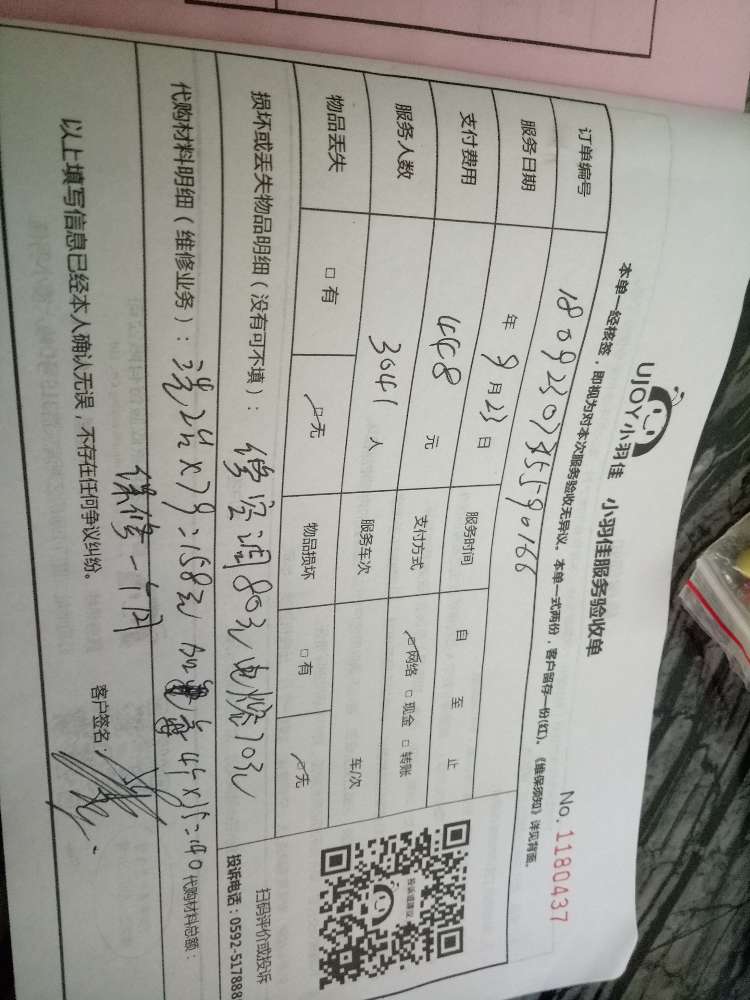 UJOY小羽佳 小羽佳服务验收单
No. 1180437
本单一经核签，即视为对本次服务验收无异议。本单一式两份，客户留存一份(红)。《维保须知》详见背面。
订单编号 180923075590166
服务日期 年 9月23日 服务时间 自 至 止
支付费用 448 元 支付方式 □网络 □现金 □转账
服务人数 3041 人 服务车次 车/次
物品丢失 □有 □无 物品损坏 □有 □无
损坏或丢失物品明细（没有可不填）： 修空调80元 电烙70元
扫码评价或投诉
投诉建议
投诉电话：0592-517888
代购材料明细（维修业务）： 洗2台×79=158元 加 4×35=140 代购材料总额：
保修一个月
以上填写信息已经本人确认无误，不存在任何争议纠纷。 客户签名：